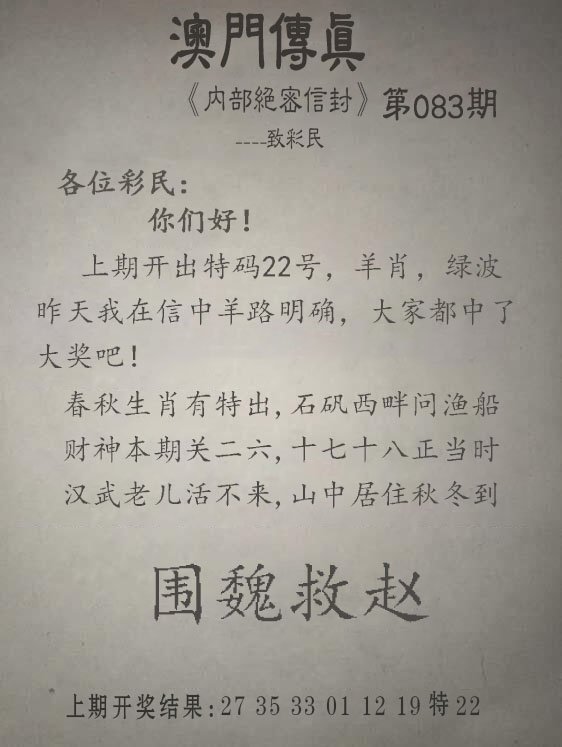 澳門傳眞
《内部絕密信封》第083期
----致彩民
各位彩民：
你们好！
上期开出特码22号，羊肖，绿波
昨天我在信中羊路明确，大家都中了
大奖吧！
春秋生肖有特出,石矾西畔问渔船
财神本期关二六,十七十八正当时
汉武老儿活不来,山中居住秋冬到
围魏救赵
上期开奖结果：27 35 33 01 12 19 特 22